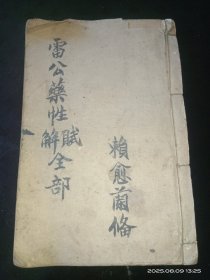 雷公藥性賦
解全部
賴愈蘭俻
2025.06.09 13:25